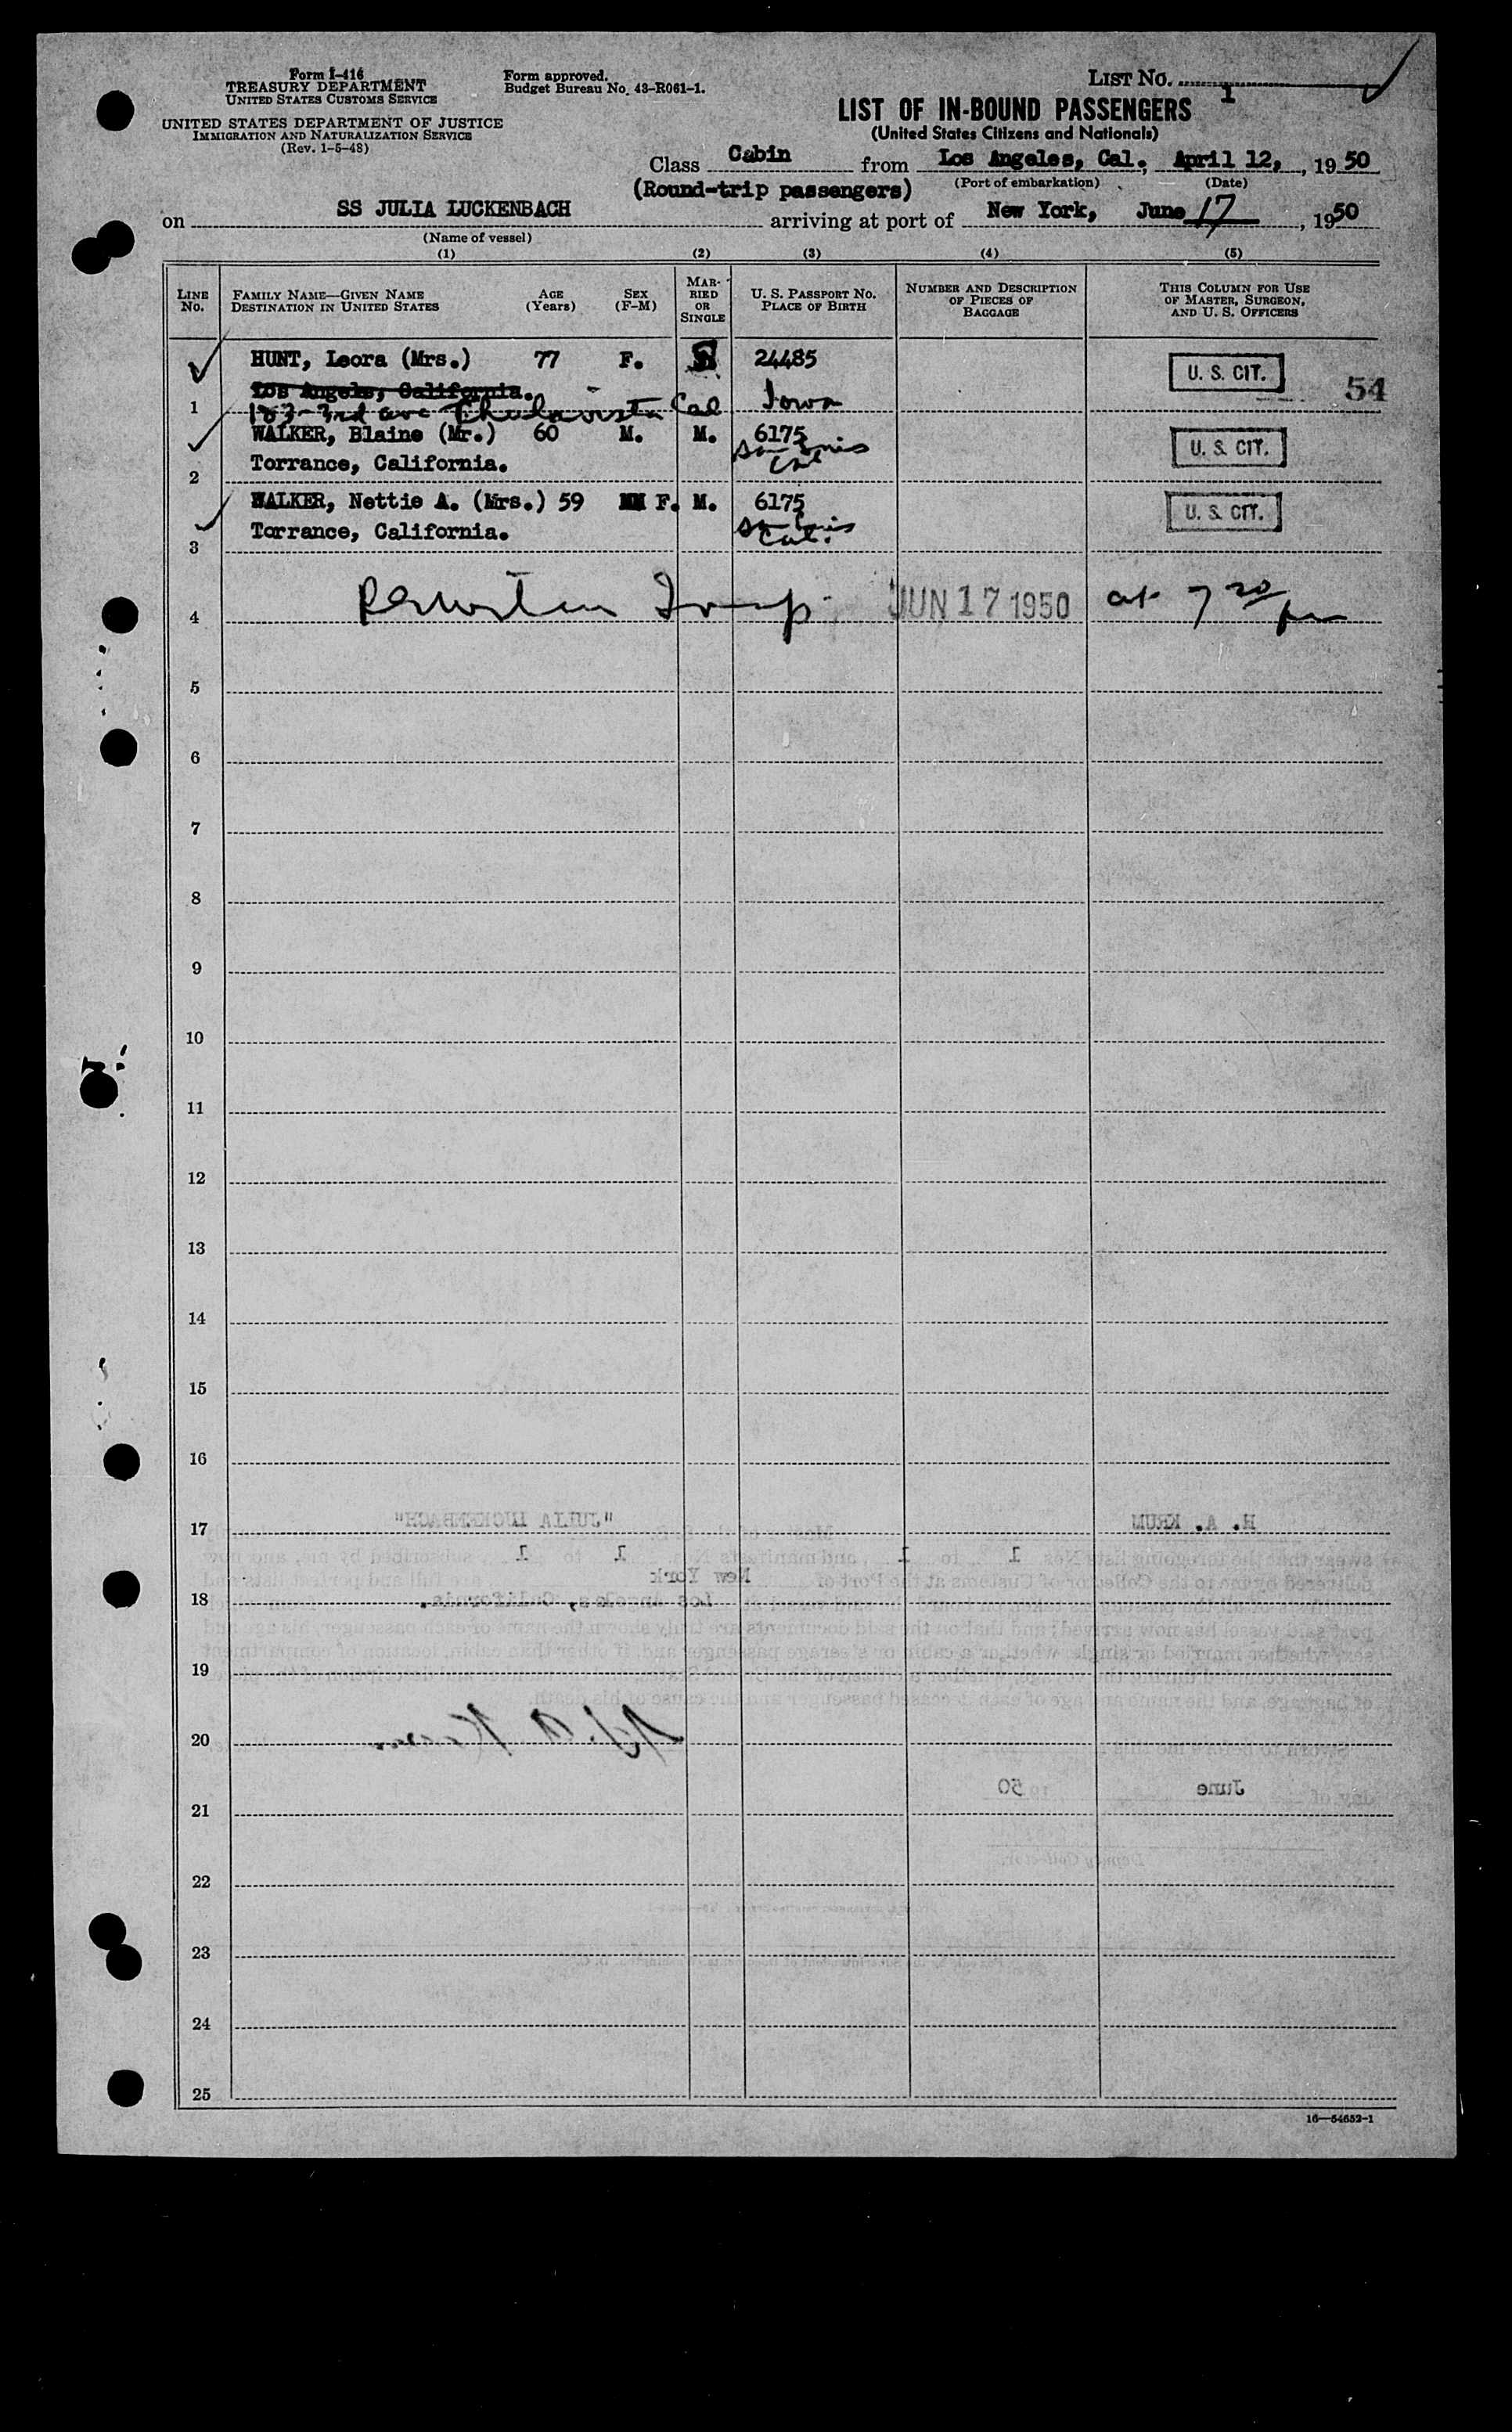 Form I-416
TREASURY DEPARTMENT
UNITED STATES CUSTOMS SERVICE
UNITED STATES DEPARTMENT OF JUSTICE
IMMIGRATION AND NATURALIZATION SERVICE
(Rev. 1-5-48)
Form approved.
Budget Bureau No. 43-R061-1.
LIST NO. 1
LIST OF IN-BOUND PASSENGERS
(United States Citizens and Nationals)
Class Cabin from Los Angeles, Cal., April 12, , 1950
(Round-trip passengers) (Port of embarkation) (Date)
on SS JULIA LUCKENBACH arriving at port of New York, June 17 , 1950
(Name of vessel)
(1) (2) (3) (4) (5)
LINE NO. FAMILY NAME—GIVEN NAME DESTINATION IN UNITED STATES AGE (Years) SEX (F-M) MARRIED OR SINGLE U. S. PASSPORT NO. PLACE OF BIRTH NUMBER AND DESCRIPTION OF PIECES OF BAGGAGE THIS COLUMN FOR USE OF MASTER, SURGEON, AND U. S. OFFICERS
HUNT, Leora (Mrs.) 77 F. 24485 U. S. CIT. 54
Los Angels, California.
1 3rd ave Chulavista Cal Iowa
WALKER, Blaine (Mr.) 60 M. M. 6175 U. S. CIT.
2 Torrance, California. Cal
WALKER, Nettie A. (Mrs.) 59 F. M. 6175 U. S. CIT.
3 Torrance, California. Cal.
4 JUN 17 1950 at 7 30 pm
5
6
7
8
9
10
11
12
13
14
15
16
17 "JULIA LUCKENBACH" H. A. KRUM
1 to 1 1 to 1
New York
18 Los Angeles, California.
19
20 H. A. Krum
June 50
21
22
23
24
25
16—54652-1